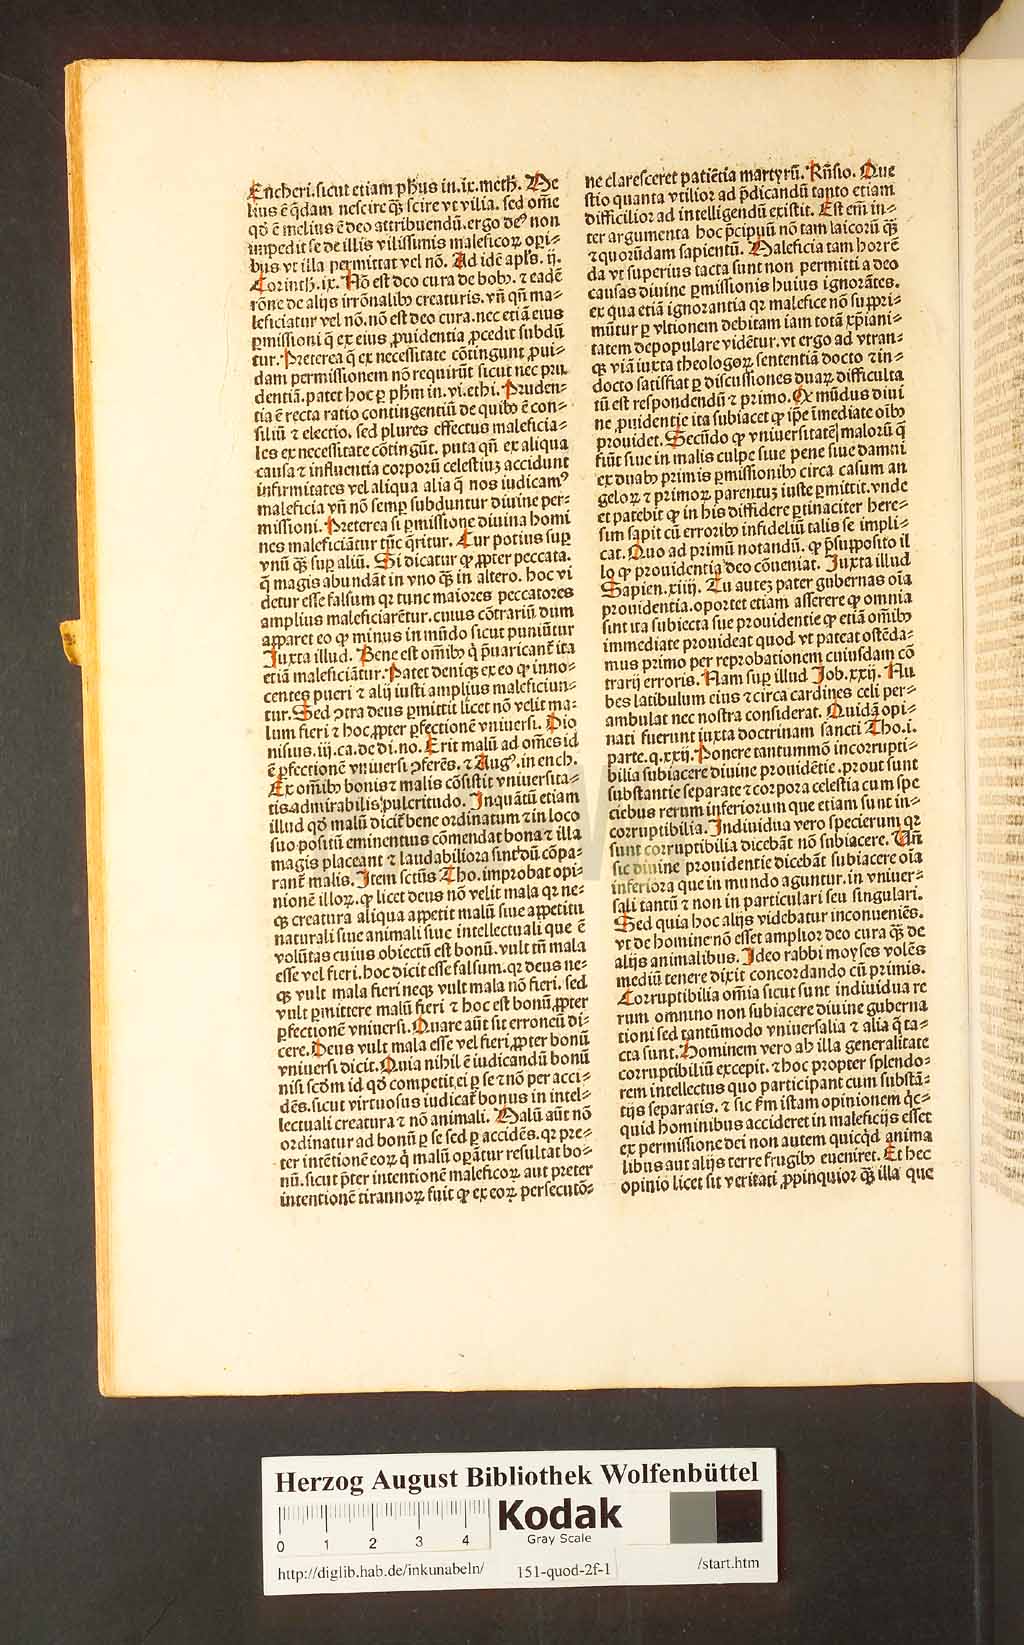 Encheri. sicut etiam ph̄us in. ix. meth̄. Me
lius ē q̄dam nescire qȝ scire vt vilia. sed om̄e
qđ ē melius ē deo attribuendū. ergo deꝰ non
impedit se de illis vilissimis maleficoꝝ opi⸗
bus vt illa permittat vel nō. Ad idē apl̄s. ij.
Corinth̄. ix. Nō est deo cura de bobꝫ. ⁊ eadē
rōne de alijs irrōnalibꝫ creaturis. vn̄ qn̄ ma⸗
leficiatur vel nō. nō est deo cura. nec etiā eius
ꝑmissioni q̄ ex eius ꝓuidentia ꝓcedit subdū
tur. Preterea q̄ ex necessitate cōtingunt ꝓui⸗
dam permissionem nō requirūt sicut nec pru
dentiā. patet hoc ꝑ ph̄m in. vi. ethi. Pruden⸗
tia ē recta ratio contingentiū de quibꝫ ē con⸗
siliū ⁊ electio. sed plures effectus maleficia⸗
les ex necessitate cōtingūt. puta qn̄ ex aliqua
causa ⁊ influentia corporū celestiuȝ accidunt
infirmitates vel aliqua alia q̄ nos iudicamꝰ
maleficia vn̄ nō semꝑ subduntur diuine per⸗
missioni. Preterea si ꝑmissione diuina homi
nes maleficiātur tūc q̄ritur. Cur potius suꝑ
vnū qȝ suꝑ aliū. Si dicatur ꝙ ꝓpter peccata.
q̄ magis abundāt in vno qȝ in altero. hoc vi
detur esse falsum qꝛ tunc maiores peccatores
amplius maleficiarētur. cuius cōtrariū dum
apparet eo ꝙ minus in mūdo sicut puniūtur
Juxta illud. Bene est om̄ibꝫ q̄ p̄uaricant̄ ita
etiā maleficiātur. Patet deniqꝫ ex eo ꝙ inno⸗
centes pueri ⁊ alij iusti amplius maleficiun⸗
tur. Sed ↄtra deus ꝑmittit licet nō velit ma⸗
lum fieri ⁊ hoc ꝓpter ꝑfectionē vniuersi. Dio
nisius. iij. ca. de di. no. Erit malū ad om̄es id
ē ꝑfectionē vniuersi ↄferēs. ⁊ Augꝰ. in ench.
Ex om̄ibꝫ bonis ⁊ malis cōsistit vniuersita⸗
tis admirabilis pulcritudo. Jnquātū etiam
illud qđ malū dicit̄ bene ordinatum ⁊ in loco
suo positū eminentius cōmendat bona ⁊ illa
magis placeant ⁊ laudabiliora sint dū cōpa⸗
rant̄ malis. Jtem sctūs Tho. improbat opi⸗
nionē illoꝝ. ꝙ licet deus nō velit mala qꝛ ne⸗
qꝫ creatura aliqua appetit malū siue appetitu
naturali siue animali siue intellectuali que ē
volūtas cuius obiectū est bonū. vult tn̄ mala
esse vel fieri. hoc dicit esse falsum. qꝛ deus ne⸗
qꝫ vult mala fieri neqꝫ vult mala nō fieri. sed
vult ꝑmittere malū fieri ⁊ hoc est bonū ꝓpter
ꝑfectionē vniuersi. Quare aūt sit erroneū di⸗
cere. Deus vult mala esse vel fieri ꝓpter bonū
vniuersi dicit. Quia nihil ē iudicandū bonū
nisi scđm id qđ competit ei ꝑ se ⁊ nō per acci⸗
dēs. sicut virtuosus iudicat̄ bonus in intel⸗
lectuali creatura ⁊ nō animali. Malū aūt nō
ordinatur ad bonū ꝑ se sed ꝑ accidēs. qꝛ pre⸗
ter intētionē eoꝝ q̇ malū oꝑātur resultat bo⸗
nū. sicut p̄ter intentionē maleficoꝝ aut preter
intentionē tirannoꝝ fuit ꝙ ex eoꝝ persecutō⸗
ne claresceret patiētia martyrū. Rn̄sio. Que
stio quanta vtilior ad p̄dicandū tanto etiam
difficilior ad intelligendū existit. Est em̄ in⸗
ter argumenta hoc p̄cipuū nō tam laicorū qȝ
⁊ quorūdam sapientū. Maleficia tam horrē
da vt superius tacta sunt non permitti a deo
causas diuine ꝑmissionis huius ignorātes.
ex qua etiā ignorantia qꝛ malefice nō suppri⸗
mūtur ꝑ vltionem debitam iam totā xp̄iani⸗
tatem depopulare vidētur. vt ergo ad vtran⸗
qꝫ viā iuxta theologoꝝ sententiā docto ⁊ in⸗
docto satisfiat ꝑ discussiones duaꝝ difficulta
tū est respondendū ⁊ primo. Qꝫ mūdus diui
ne ꝓuidentie ita subiacet ꝙ ip̄e īmediate oībꝫ
prouidet. Secūdo ꝙ vniuersitatē malorū q̄
fiūt siue in malis culpe siue pene siue damni
ex duabꝫ primis ꝑmissionibꝫ circa casum an
geloꝝ ⁊ primoꝝ parentuȝ iuste ꝑmittit. vnde
et patebit ꝙ in his diffidere ꝑtinaciter here⸗
sim sapit cū erroribꝫ infideliū talis se impli⸗
cat. Quo ad primū notandū. ꝙ p̄supposito il
lo ꝙ prouidentia deo cōueniat. Juxta illud
Sapien. xiiij. Tu auteȝ pater gubernas oīa
prouidentia. oportet etiam asserere ꝙ omnia
sint ita subiecta sue prouidentie ꝙ etiā om̄ibꝫ
immediate prouideat quod vt pateat ostēda⸗
mus primo per reprobationem cuiusdam cō
trarij erroris. Nam suꝑ illud Job. xxij. Nu
bes latibulum eius ⁊ circa cardines celi per⸗
ambulat nec nostra considerat. Quidā opi⸗
nati fuerunt iuxta doctrinam sancti Tho. i.
parte. q. xxij. Ponere tantummō incorrupti⸗
bilia subiacere diuine prouidētie. prout sunt
substantie separate ⁊ corpora celestia cum spe
ciebus rerum inferiorum que etiam sunt in⸗
corruptibilia. Jndiuidua vero specierum qꝛ
sunt corruptibilia dicebāt nō subiacere. Vn̄
sic diuine prouidentie dicebāt subiacere oīa
inferiora que in mundo aguntur. in vniuer⸗
sali tantū ⁊ non in particulari seu singulari.
Sed quia hoc alijs videbatur inconueniēs.
vt de homine nō esset amplior deo cura qȝ de
alijs animalibus. Jdeo rabbi moyses volēs
mediū tenere dixit concordando cū primis.
Corruptibilia om̄ia sicut sunt indiuidua re
rum omnino non subiacere diuine guberna
tioni sed tantūmodo vniuersalia ⁊ alia q̄ ta⸗
cta sunt. Hominem vero ab illa generalitate
corruptibiliū excepit. ⁊ hoc propter splendo⸗
rem intellectus quo participant cum substā⸗
tijs separatis. ⁊ sic ẜm istam opinionem q̇c⸗
quid hominibus accideret in maleficijs esset
ex permissione dei non autem quicq̇d anima
libus aut alijs terre frugibꝫ eueniret. Et hec
opinio licet sit veritati ꝓpinquior qȝ illa que
Herzog August Bibliothek Wolfenbüttel
0 1 2 3 4
Kodak
Gray Scale
http://diglib.hab.de/inkunabeln/ 151-quod-2f-1 /start.htm